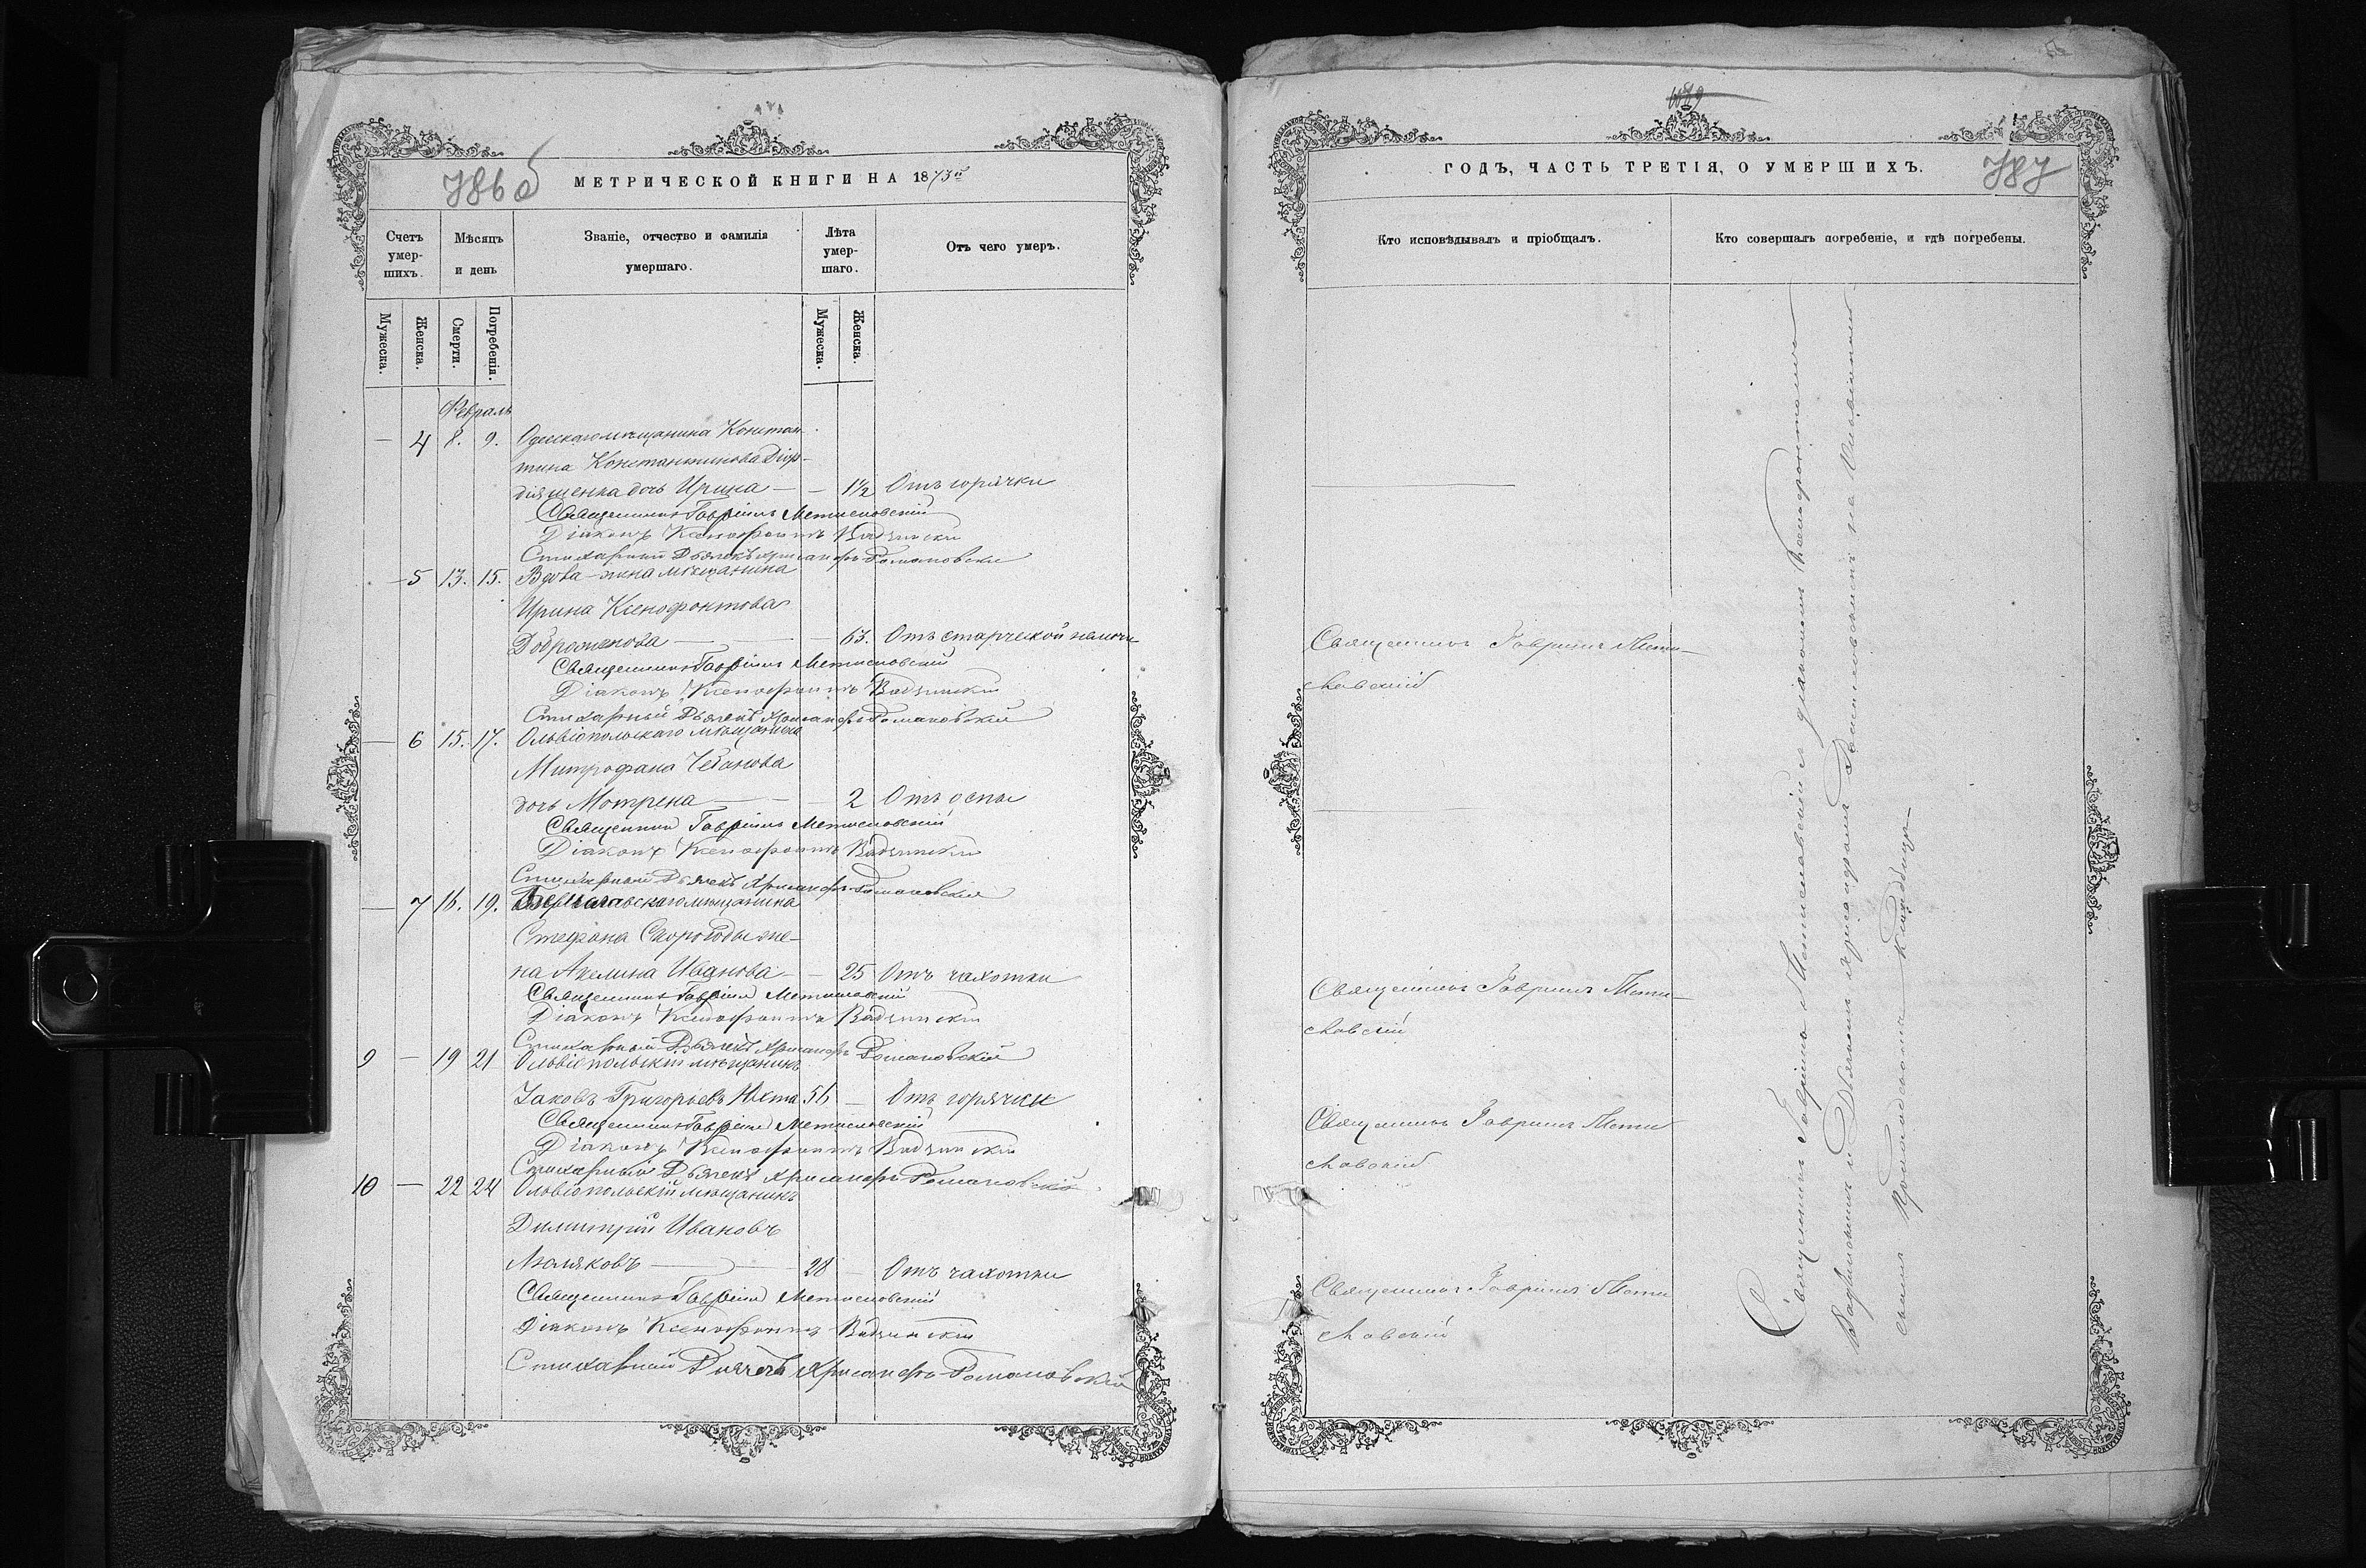 786 об
МЕТРИЧЕСКОЙ КНИГИ НА 1873й
Счетъ умер-шихъ.
Мѣсяцъ и день
Званіе, отчество и фамилія умершаго.
Лѣта умер-шаго.
Отъ чего умеръ.
Мужеска.
Женска.
Смерти.
Погребенія.
Мужеска.
Женска.
Февраль
— 4 8. 9. Одескаго мѣщанина Констан-
тина Константинова
дочь Ирина — — 1½ Отъ горячки
Священникъ Гавріилъ Мстиславскій
Діаконъ Ксенофонтъ
Стихарный Дьячекъ Хрисанфъ Романовскій
— 5 13. 15. Вдова – жена мѣщанина
Ирина Ксенофонтова
Доброженова — — — 63. Отъ старческой немочи
Священникъ Гавріилъ Мстиславскій
Діаконъ Ксенофонтъ
Стихарный Дьячекъ Хрисанфъ Романовскій
— 6 15. 17. Ольвіопольскаго мѣщанина
Митрофана Чебанова
дочь Мотрена — — — 2 Отъ оспы
Священникъ Гавріилъ Мстиславскій
Діаконъ Ксенофонтъ
Стихарный Дьячекъ Хрисанфъ Романовскій
— 7 16. 19. мѣщанина
Стефана Скорободы же-
на Акелина Иванова — — 25 Отъ чахотки
Священникъ Гавріилъ Мстиславскій
Діаконъ Ксенофонтъ
Стихарный Дьячекъ Хрисанфъ Романовскій
9 — 19 21 Ольвіопольскій мѣщанинъ
Іаковъ Григорьевъ Юхта 56 — Отъ горячки
Священникъ Гавріилъ Мстиславскій
Діаконъ Ксенофонтъ
Стихарный Дьячекъ Хрисанфъ Романовскій
10 — 22 24 Ольвіопольскій мѣщанинъ
Димитрій Ивановъ
Маляковъ — 28 — Отъ чахотки
Священникъ Гавріилъ Мстиславскій
Діаконъ Ксенофонтъ
Стихарный Дьячекъ Хрисанфъ Романовскій
787
ГОДЪ, ЧАСТЬ ТРЕТІЯ, О УМЕРШИХЪ.
Кто исповѣдывалъ и пріобщалъ.
Кто совершалъ погребеніе, и гдѣ погребены.
Священникъ Гавріилъ Мсти-
славскій
Священникъ Гавріилъ Мсти-
славскій
Священникъ Гавріилъ Мсти
славскій
Священникъ Гавріилъ Мсти
славскій
Священникъ Гавріилъ Мстиславскій съ діакономъ Ксенофонтомъ
и Дьячкомъ Хрисанфомъ Романовскимъ на Ольвіополь-
скомъ кладбищѣ